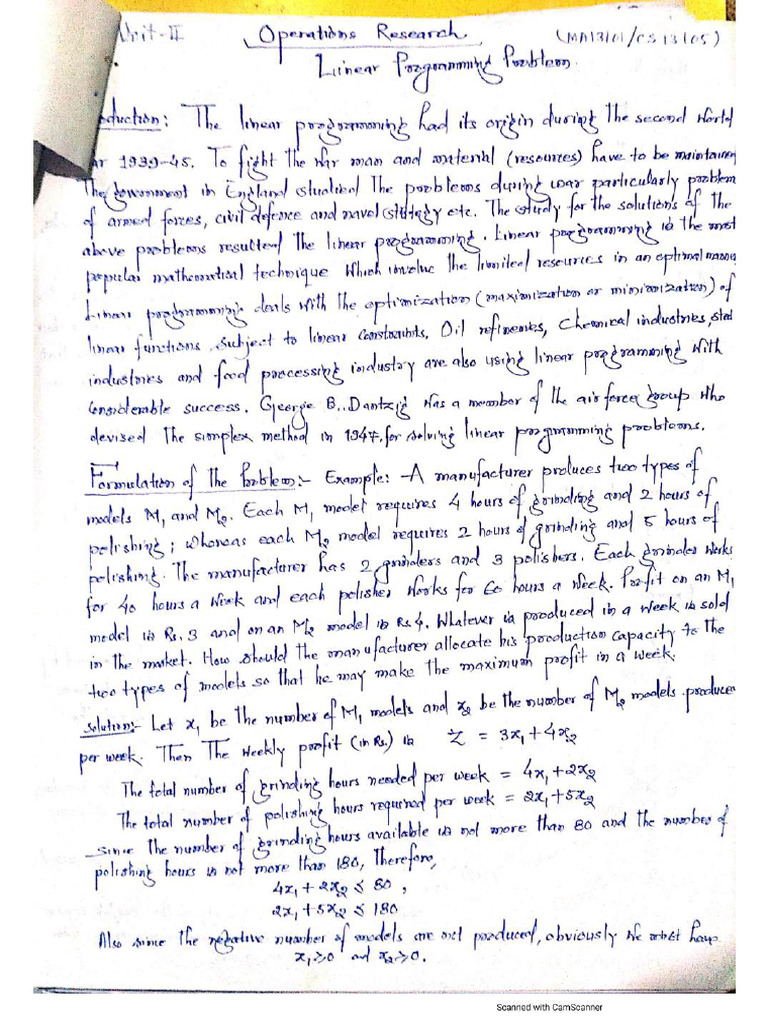 Unit-II Operations Research (MA13101/CS13105)
Linear Programming Problem.
oduction: The linear programming had its origin during the second World
ar 1939-45. To fight the War man and material (resources) have to be maintained
The government in England studied the problems during war particularly problem
of armed forces, civil defence and navel strategy etc. The study for the solutions of the
above problems resulted the linear programming. Linear programming is the most
popular mathematical technique which involve the limited resources in an optimal manner
Linear programming deals with the optimization (maximization or minimization) of
linear functions subject to linear constraints. Oil refineries, chemical industries, steel
industries and food processing industry are also using linear programming with
considerable success. George B. Dantzig was a member of the air force group who
devised the simplex method in 1947. for solving linear programming problems.
Formulation of the Problem:- Example:- A manufacturer produces two types of
models M1 and M2. Each M1 model requires 4 hours of grinding and 2 hours of
polishing; whereas each M2 model requires 2 hours of grinding and 5 hours of
polishing. The manufacturer has 2 grinders and 3 polishers. Each grinder works
for 40 hours a week and each polisher works for 60 hours a week. Profit on an M1
model is Rs. 3 and on an M2 model is Rs. 4. Whatever is produced in a week is sold
in the market. How should the manufacturer allocate his production capacity to the
two types of models so that he may make the maximum profit in a week.
Solution:- Let x1 be the number of M1 models and x2 be the number of M2 models produce
per week. Then The weekly profit (in Rs.) is Z = 3x1+4x2
The total number of grinding hours needed per week = 4x1+2x2
The total number of polishing hours required per week = 2x1+5x2
Since the number of grinding hours available is not more than 80 and the number of
polishing hours is not more than 180, Therefore,
4x1+2x2 ≤ 80,
2x1+5x2 ≤ 180
Also since the negative number of models are not produced, obviously we must have
x1≥0 and x2≥0.
Scanned with CamScanner